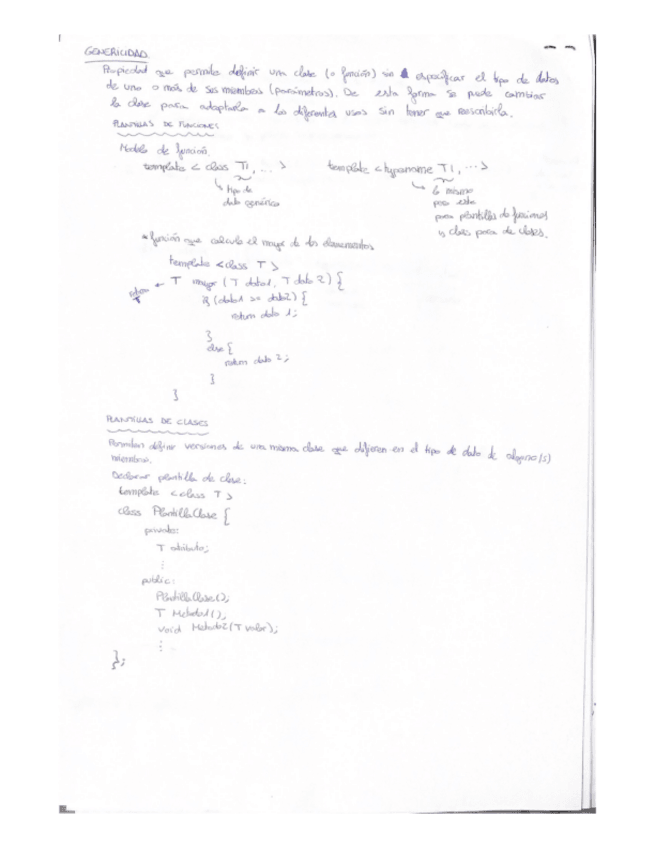 GENERICIDAD
Propiedad que permite definir una clase (o función) sin especificar el tipo de datos
de uno o más de sus miembros (parámetros). De esta forma se puede cambiar
la clase para adaptarla a los diferentes usos sin tener que reescribirla.
PLANTILLAS DE FUNCIONES
Modelo de función
template < class T1, ... >
tipo de
dato genérico
template < typename T1, ... >
lo mismo
pero esta
para plantillas de funciones
y class para de clases.
* función que calcula el mayor de dos elementos
template <class T>
T mayor (T dato1, T dato2) {
if (dato1 >= dato2) {
return dato 1;
}
else {
return dato 2;
}
}
PLANTILLAS DE CLASES
Permiten definir versiones de una misma clase que difieren en el tipo de dato de alguno(s)
miembros.
Declarar plantilla de clase:
template <class T>
class PlantillaClase {
private:
T atributo;
⋮
public:
PlantillaClase();
T Metodo1();
void Metodo2(T valor);
⋮
};